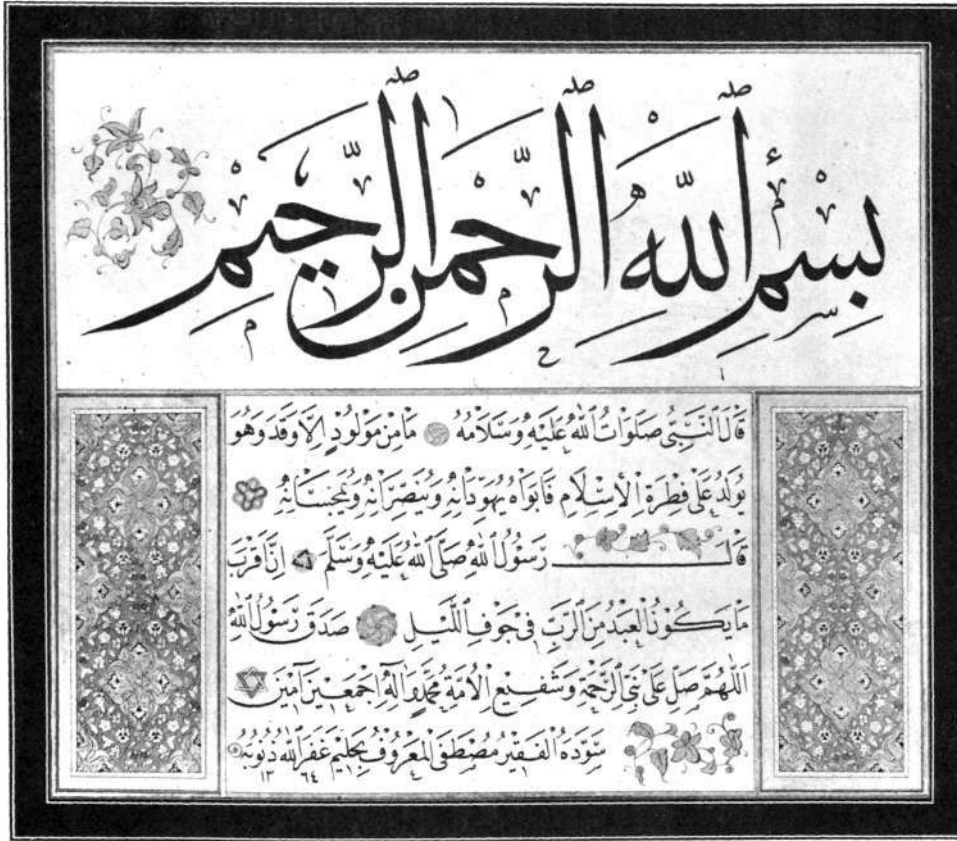 بِسْمِ ٱللّٰهِ ٱلرَّحْمٰنِ ٱلرَّحِيمِ
قَالَ النَّبِيُّ صَلَوَاتُ اللّٰهِ عَلَيْهِ وَسَلَامُهُ مَا مِنْ مَوْلُودٍ اِلَّا وَقَدْ وَهُوَ
يُولَدُ عَلَى فِطْرَةِ الْأِسْلَامِ فَابَوَاهُ يُهَوِّدَانِهِ وَيُنَصِّرَانِهِ وَيُمَجِّسَانِهِ
قَالَ رَسُولُ اللّٰهِ صَلَّى اللّٰهُ عَلَيْهِ وَسَلَّمَ اِنَّ اَقْرَبَ
مَا يَكُونُ الْعَبْدُ مِنَ الرَّبِّ فِى جَوْفِ اللَّيْلِ صَدَقَ رَسُولُ اللّٰهِ
اَللّٰهُمَّ صَلِّ عَلَى نَبِىِّ الرَّحْمَةِ وَشَفِيعِ الْاُمَّةِ مُحَمَّدٍ وَاٰلِهِ اَجْمَعِينَ آمِينَ
سَوَّدَهُ الْفَقِيرُ مُصْطَفَى الْمَعْرُوفُ بِحَلِيمْ غَفَرَ اللّٰهُ ذُنُوبَهُ
١٣٦٤